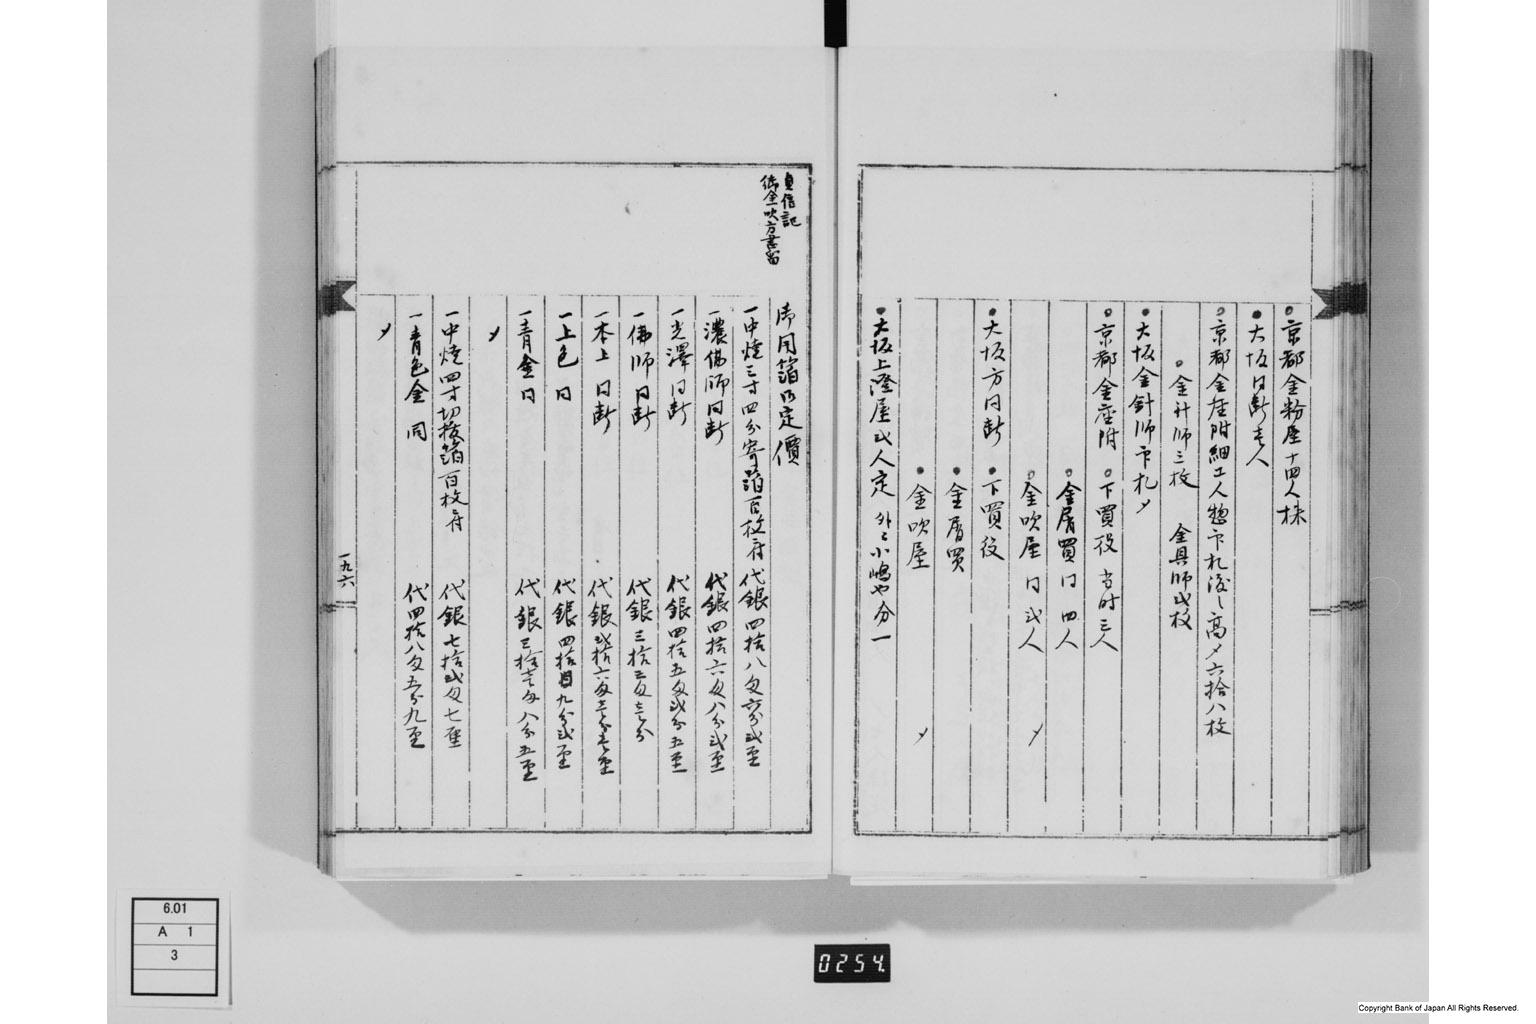 ○京都金粉屋十四人株
●大坂同断壱人
○京都金座附細工人惣〆札渡し高〆六拾八枚
○金針師三枚 金具師弐枚
●大坂金針師〆札〆
○京都金座附 ○下買役 当時三人
●金屑買 同 四人
○金吹屋 同 弐人 〆
●大坂方同断 ●下買役
●金屑買
●金吹屋 〆
●大坂上澄屋弐人定 外ニ小嶋や分一
貞信記
御金吹方書留
御用箔御定價
一中焼三寸四分寄箔百枚ニ付 代銀四拾八匁六分弐厘
一濃佛師同断 代銀四拾六匁八分弐厘
一光澤同断 代銀四拾五匁弐分五厘
一佛師同断 代銀三拾三匁壱分
一本上同断 代銀弐拾六匁壱分壱厘
一上色同 代銀四拾目九分弐厘
一青金同 代銀三拾壱匁八分五厘
〆
一中焼四寸切抜箔百枚ニ付 代銀七拾弐匁七厘
一青色金 同 代四拾八匁五分九厘
〆
一九六
6.01
A 1
3
0254
Copyright Bank of Japan All Rights Reserved.